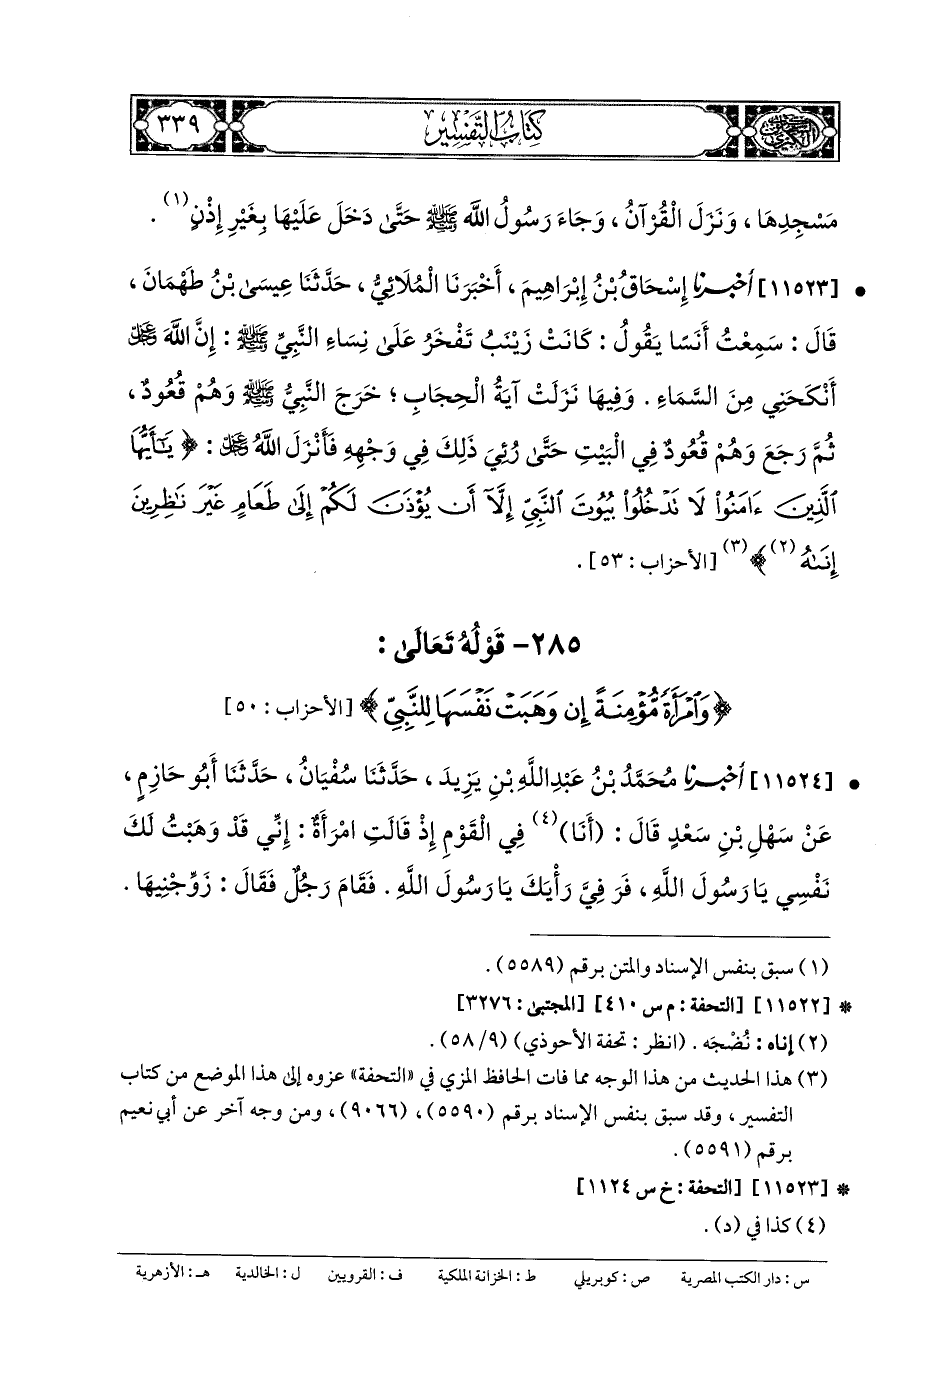 كتاب التفسير
٣٣٩
مَسْجِدِهَا ، وَنَزَلَ الْقُرْآنُ ، وَجَاءَ رَسُولُ اللَّه ﷺ حَتَّى دَخَلَ عَلَيْهَا بِغَيْرِ إِذْنٍ(١) .
• [١١٥٢٣] أخبرنا إِسْحَاقُ بْنُ إِبْرَاهِيمَ ، أَخْبَرَنَا الْمُلَائِيُّ ، حَدَّثَنَا عِيسَى بْنُ طَهْمَانَ ،
قَالَ : سَمِعْتُ أَنَسًا يَقُولُ : كَانَتْ زَيْنَبُ تَفْخَرُ عَلَى نِسَاءِ النَّبِيِّ ﷺ : إِنَّ اللَّهَ ﷻ
أَنْكَحَنِي مِنَ السَّمَاءِ . وَفِيهَا نَزَلَتْ آيَةُ الْحِجَابِ ؛ خَرَجَ النَّبِيُّ ﷺ وَهُمْ قُعُودٌ ،
ثُمَّ رَجَعَ وَهُمْ قُعُودٌ فِي الْبَيْتِ حَتَّى رُئِيَ ذَلِكَ فِي وَجْهِهِ فَأَنْزَلَ اللَّهُ ﷻ : ﴿ يَٰٓأَيُّهَا
ٱلَّذِينَ ءَامَنُوا۟ لَا تَدْخُلُوا۟ بُيُوتَ ٱلنَّبِىِّ إِلَّآ أَن يُؤْذَنَ لَكُمْ إِلَىٰ طَعَامٍ غَيْرَ نَٰظِرِينَ
إِنَىٰهُ (٢) ﴾ (٣) [الأحزاب : ٥٣] .
٢٨٥- قَوْلُهُ تَعَالَى :
﴿ وَٱمْرَأَةً مُّؤْمِنَةً إِن وَهَبَتْ نَفْسَهَا لِلنَّبِىِّ ﴾ [الأحزاب : ٥٠]
• [١١٥٢٤] أخبرنا مُحَمَّدُ بْنُ عَبْدِ اللَّهِ بْنِ يَزِيدَ ، حَدَّثَنَا سُفْيَانُ ، حَدَّثَنَا أَبُو حَازِمٍ ،
عَنْ سَهْلِ بْنِ سَعْدٍ قَالَ : (أَنَا)(٤) فِي الْقَوْمِ إِذْ قَالَتِ امْرَأَةٌ : إِنِّي قَدْ وَهَبْتُ لَكَ
نَفْسِي يَا رَسُولَ اللَّهِ ، فَرَ فِيَّ رَأْيَكَ يَا رَسُولَ اللَّهِ . فَقَامَ رَجُلٌ فَقَالَ : زَوِّجْنِيهَا .
(١) سبق بنفس الإسناد والمتن برقم (٥٥٨٩) .
* [١١٥٢٢] [التحفة : م س ٤١٠] [المجتبى : ٣٢٧٦]
(٢) إناه : نُضْجَه . (انظر : تحفة الأحوذي) (٥٨/٩) .
(٣) هذا الحديث من هذا الوجه مما فات الحافظ المزي في «التحفة» عزوه إلى هذا الموضع من كتاب
التفسير ، وقد سبق بنفس الإسناد برقم (٥٥٩٠) ، (٩٠٦٦) ، ومن وجه آخر عن أبي نعيم
برقم (٥٥٩١) .
* [١١٥٢٣] [التحفة : خ س ١١٢٤]
(٤) كذا في (د) .
س : دار الكتب المصرية ص : كوبريلي ط : الخزانة الملكية ف : القرويين ل : الخالدية هـ : الأزهرية